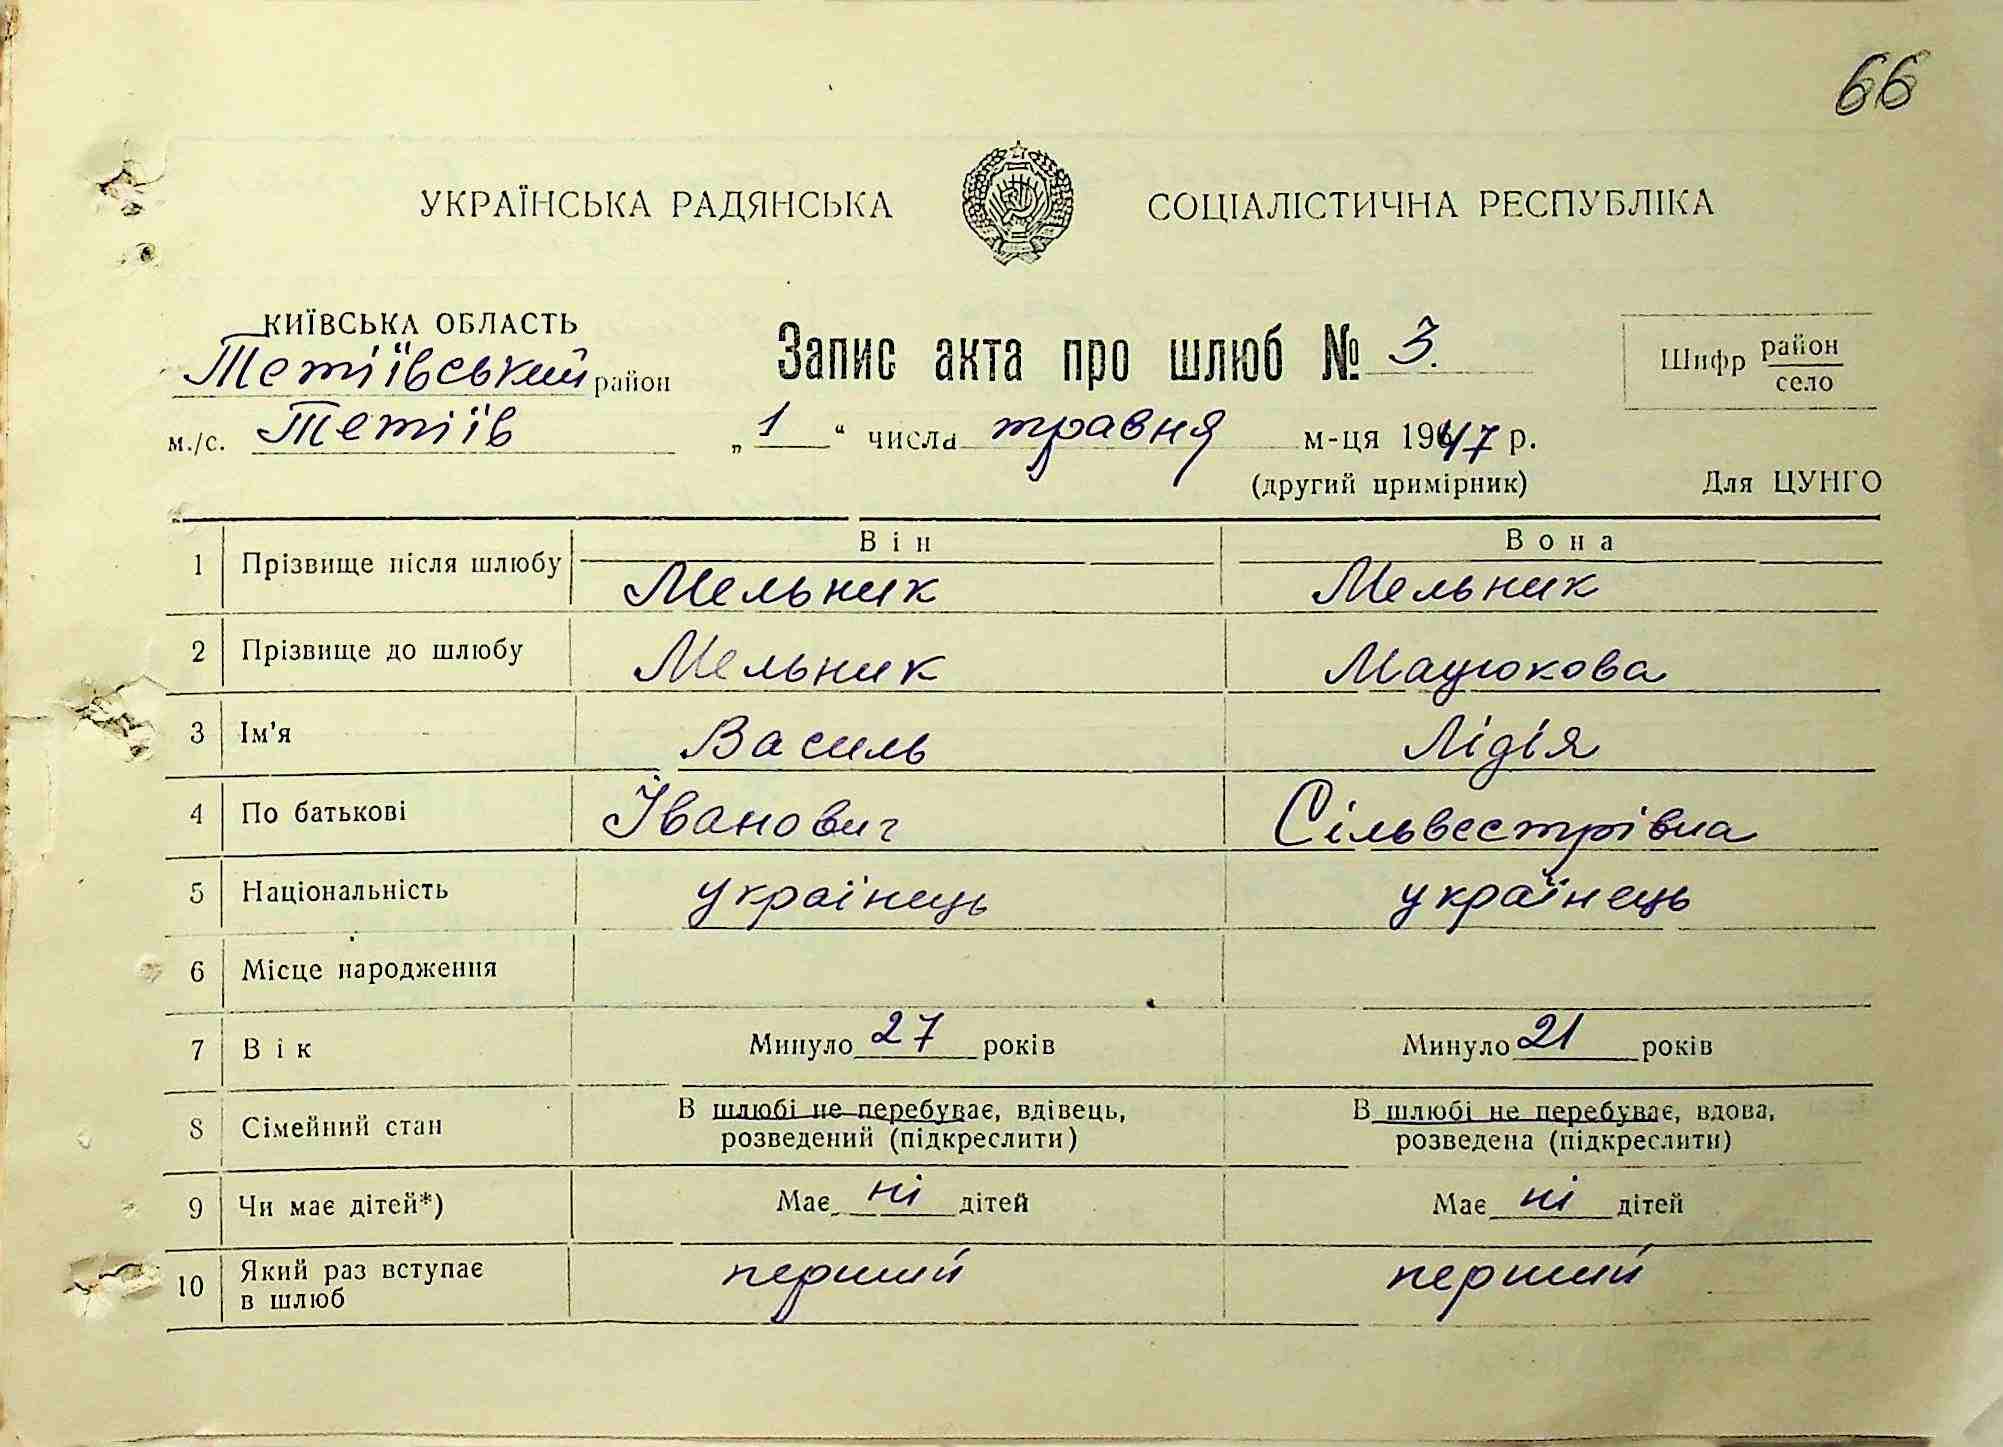 66
УКРАЇНСЬКА РАДЯНСЬКА СОЦІАЛІСТИЧНА РЕСПУБЛІКА
КИЇВСЬКА ОБЛАСТЬ
Тетіївський район
Запис акта про шлюб № 3.
Шифр район
село
м./с. Тетіїв „1“ числа травня м-ця 1947 р.
(другий примірник) Для ЦУНГО
Він Вона
1 Прізвище після шлюбу Мельник Мельник
2 Прізвище до шлюбу Мельник Мацюкова
3 Ім'я Василь Лідія
4 По батькові Іванович Сільвестрівна
5 Національність українець українець
6 Місце народження
7 Вік Минуло 27 років Минуло 21 років
8 Сімейний стан В шлюбі не перебуває, вдівець, В шлюбі не перебуває, вдова,
розведений (підкреслити) розведена (підкреслити)
9 Чи має дітей*) Має ні дітей Має ні дітей
10 Який раз вступає перший перший
в шлюб